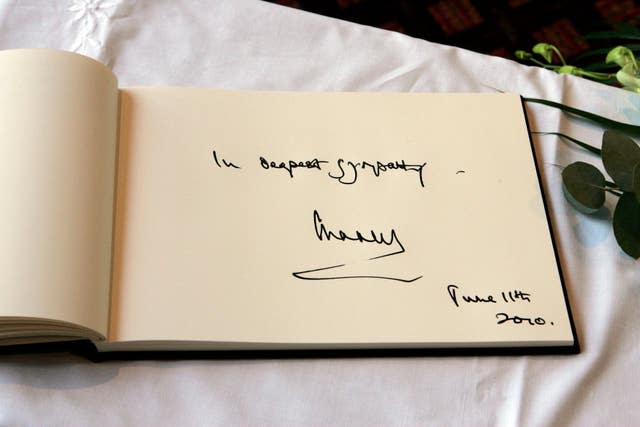 In deepest sympathy -
Charles
June 11th
2010.